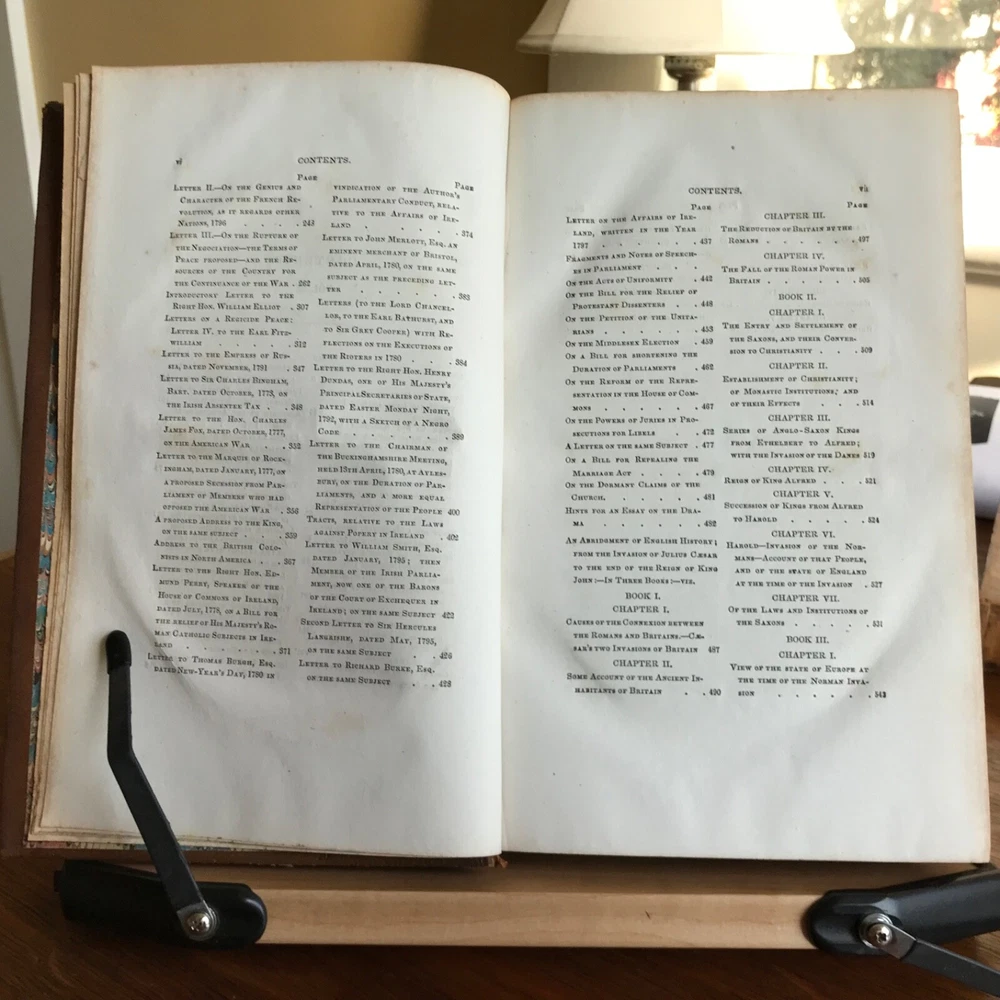 vi
CONTENTS.
PAGE
LETTER II.—ON THE GENIUS AND
CHARACTER OF THE FRENCH RE-
VOLUTION, AS IT REGARDS OTHER
NATIONS, 1796 . . . . 248
LETTER III.—ON THE RUPTURE OF
THE NEGOCIATION—THE TERMS OF
PEACE PROPOSED—AND THE RE-
SOURCES OF THE COUNTRY FOR
THE CONTINUANCE OF THE WAR . 262
INTRODUCTORY LETTER TO THE
RIGHT HON. WILLIAM ELLIOT . 307
LETTERS ON A REGICIDE PEACE:
LETTER IV. TO THE EARL FITZ-
WILLIAM . . . . . 312
LETTER TO THE EMPRESS OF RUS-
SIA, DATED NOVEMBER, 1791 . 347
LETTER TO SIR CHARLES BINGHAM,
BART. DATED OCTOBER, 1773, ON
THE IRISH ABSENTEE TAX . . 348
LETTER TO THE HON. CHARLES
JAMES FOX, DATED OCTOBER, 1777,
ON THE AMERICAN WAR . . 352
LETTER TO THE MARQUIS OF ROCK-
INGHAM, DATED JANUARY, 1777, ON
A PROPOSED SECESSION FROM PAR-
LIAMENT OF MEMBERS WHO HAD
OPPOSED THE AMERICAN WAR . 356
A PROPOSED ADDRESS TO THE KING,
ON THE SAME SUBJECT . . . 359
ADDRESS TO THE BRITISH COLO-
NISTS IN NORTH AMERICA . . 367
LETTER TO THE RIGHT HON. ED-
MUND PERRY, SPEAKER OF THE
HOUSE OF COMMONS OF IRELAND,
DATED JULY, 1778, ON A BILL FOR
THE RELIEF OF HIS MAJESTY'S RO-
MAN CATHOLIC SUBJECTS IN IRE-
LAND . . . . . . 371
LETTER TO THOMAS BURGH, ESQ.
DATED NEW-YEAR'S DAY, 1780 IN
PAGE
VINDICATION OF THE AUTHOR'S
PARLIAMENTARY CONDUCT, RELA-
TIVE TO THE AFFAIRS OF IRE-
LAND . . . . . . 374
LETTER TO JOHN MERLOTT, ESQ. AN
EMINENT MERCHANT OF BRISTOL,
DATED APRIL, 1780, ON THE SAME
SUBJECT AS THE PRECEDING LET-
TER . . . . . . 383
LETTERS (TO THE LORD CHANCEL-
LOR, TO THE EARL BATHURST, AND
TO SIR GREY COOPER) WITH RE-
FLECTIONS ON THE EXECUTIONS OF
THE RIOTERS IN 1780 . . . 384
LETTER TO THE RIGHT HON. HENRY
DUNDAS, ONE OF HIS MAJESTY'S
PRINCIPAL SECRETARIES OF STATE,
DATED EASTER MONDAY NIGHT,
1792, WITH A SKETCH OF A NEGRO
CODE . . . . . . 389
LETTER TO THE CHAIRMAN OF
THE BUCKINGHAMSHIRE MEETING,
HELD 13TH APRIL, 1780, AT AYLES-
BURY, ON THE DURATION OF PAR-
LIAMENTS, AND A MORE EQUAL
REPRESENTATION OF THE PEOPLE 400
TRACTS, RELATIVE TO THE LAWS
AGAINST POPERY IN IRELAND . 402
LETTER TO WILLIAM SMITH, ESQ.
DATED JANUARY, 1795; THEN
MEMBER OF THE IRISH PARLIA-
MENT, NOW ONE OF THE BARONS
OF THE COURT OF EXCHEQUER IN
IRELAND; ON THE SAME SUBJECT 422
SECOND LETTER TO SIR HERCULES
LANGRISHE, DATED MAY, 1795,
ON THE SAME SUBJECT . . 426
LETTER TO RICHARD BURKE, ESQ.
ON THE SAME SUBJECT . . 428
CONTENTS.
vii
PAGE
LETTER ON THE AFFAIRS OF IRE-
LAND, WRITTEN IN THE YEAR
1797 . . . . . . 437
FRAGMENTS AND NOTES OF SPEECH-
ES IN PARLIAMENT . . .
ON THE ACTS OF UNIFORMITY . . 442
ON THE BILL FOR THE RELIEF OF
PROTESTANT DISSENTERS . . 448
ON THE PETITION OF THE UNITA-
RIANS . . . . . . 453
ON THE MIDDLESEX ELECTION . . 459
ON A BILL FOR SHORTENING THE
DURATION OF PARLIAMENTS . . 462
ON THE REFORM OF THE REPRE-
SENTATION IN THE HOUSE OF COM-
MONS . . . . . . 467
ON THE POWERS OF JURIES IN PRO-
SECUTIONS FOR LIBELS . . . 472
A LETTER ON THE SAME SUBJECT . 477
ON A BILL FOR REPEALING THE
MARRIAGE ACT . . . . 479
ON THE DORMANT CLAIMS OF THE
CHURCH. . . . . . 481
HINTS FOR AN ESSAY ON THE DRA-
MA . . . . . . . 482
AN ABRIDGMENT OF ENGLISH HISTORY;
FROM THE INVASION OF JULIUS CÆSAR
TO THE END OF THE REIGN OF KING
JOHN:—IN THREE BOOKS:—VIZ.
BOOK I.
CHAPTER I.
CAUSES OF THE CONNEXION BETWEEN
THE ROMANS AND BRITAINS.—CÆ-
SAR'S TWO INVASIONS OF BRITAIN 487
CHAPTER II.
SOME ACCOUNT OF THE ANCIENT IN-
HABITANTS OF BRITAIN . . 490
PAGE
CHAPTER III.
THE REDUCTION OF BRITAIN BY THE
ROMANS . . . . . 497
CHAPTER IV.
THE FALL OF THE ROMAN POWER IN
BRITAIN . . . . . 505
BOOK II.
CHAPTER I.
THE ENTRY AND SETTLEMENT OF
THE SAXONS, AND THEIR CONVER-
SION TO CHRISTIANITY . . . 509
CHAPTER II.
ESTABLISHMENT OF CHRISTIANITY;
OF MONASTIC INSTITUTIONS; AND
OF THEIR EFFECTS . . . 514
CHAPTER III.
SERIES OF ANGLO-SAXON KINGS
FROM ETHELBERT TO ALFRED;
WITH THE INVASION OF THE DANES 519
CHAPTER IV.
REIGN OF KING ALFRED . . . 521
CHAPTER V.
SUCCESSION OF KINGS FROM ALFRED
TO HAROLD . . . . . 524
CHAPTER VI.
HAROLD—INVASION OF THE NOR-
MANS—ACCOUNT OF THAT PEOPLE,
AND OF THE STATE OF ENGLAND
AT THE TIME OF THE INVASION . 527
CHAPTER VII.
OF THE LAWS AND INSTITUTIONS OF
THE SAXONS . . . . . 531
BOOK III.
CHAPTER I.
VIEW OF THE STATE OF EUROPE AT
THE TIME OF THE NORMAN INVA-
SION . . . . . . 543